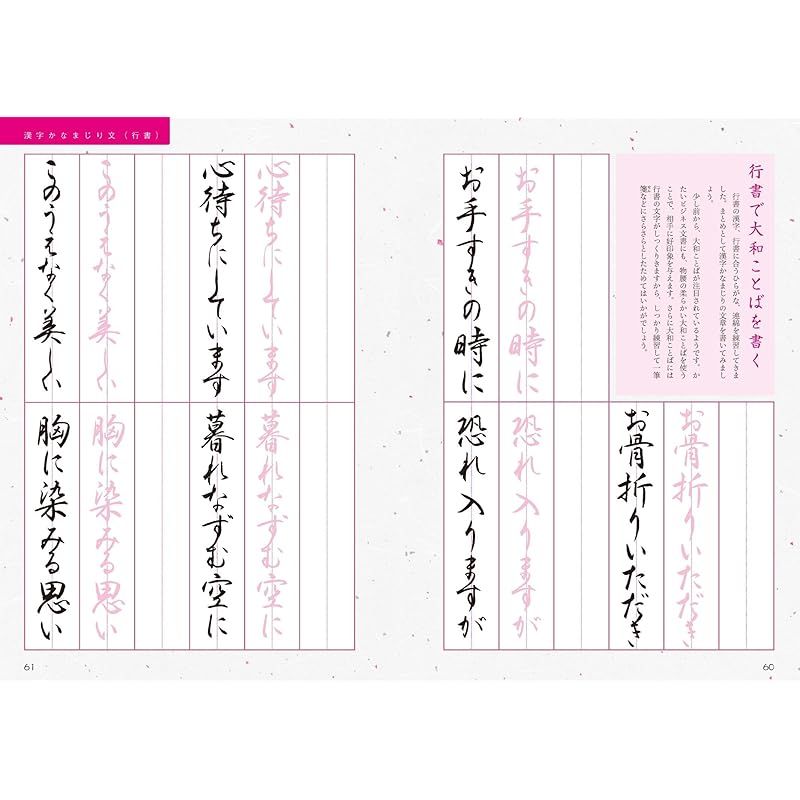 行書で大和ことばを書く
行書の漢字、行書に合うひらがな、連綿を練習してきま
した。まとめとして漢字かなまじりの文章を書いてみまし
ょう。
少し前から、大和ことばが注目されているようです。か
たいビジネス文書にも、物腰の柔らかい大和ことばを使う
ことで、相手に好印象を与えます。さらに大和ことばには
行書の文字がしっくりきますから、しっかり練習して一筆
箋などにさらさらとしたためてはいかがでしょう。
お手すきの時に
お手すきの時に
お骨折りいただき
お骨折りいただき
恐れ入りますが
恐れ入りますが
60
漢字かなまじり文（行書）
心待ちにしています
心待ちにしています
このうえなく美しい
このうえなく美しい
暮れなずむ空に
暮れなずむ空に
胸に染みる思い
胸に染みる思い
61